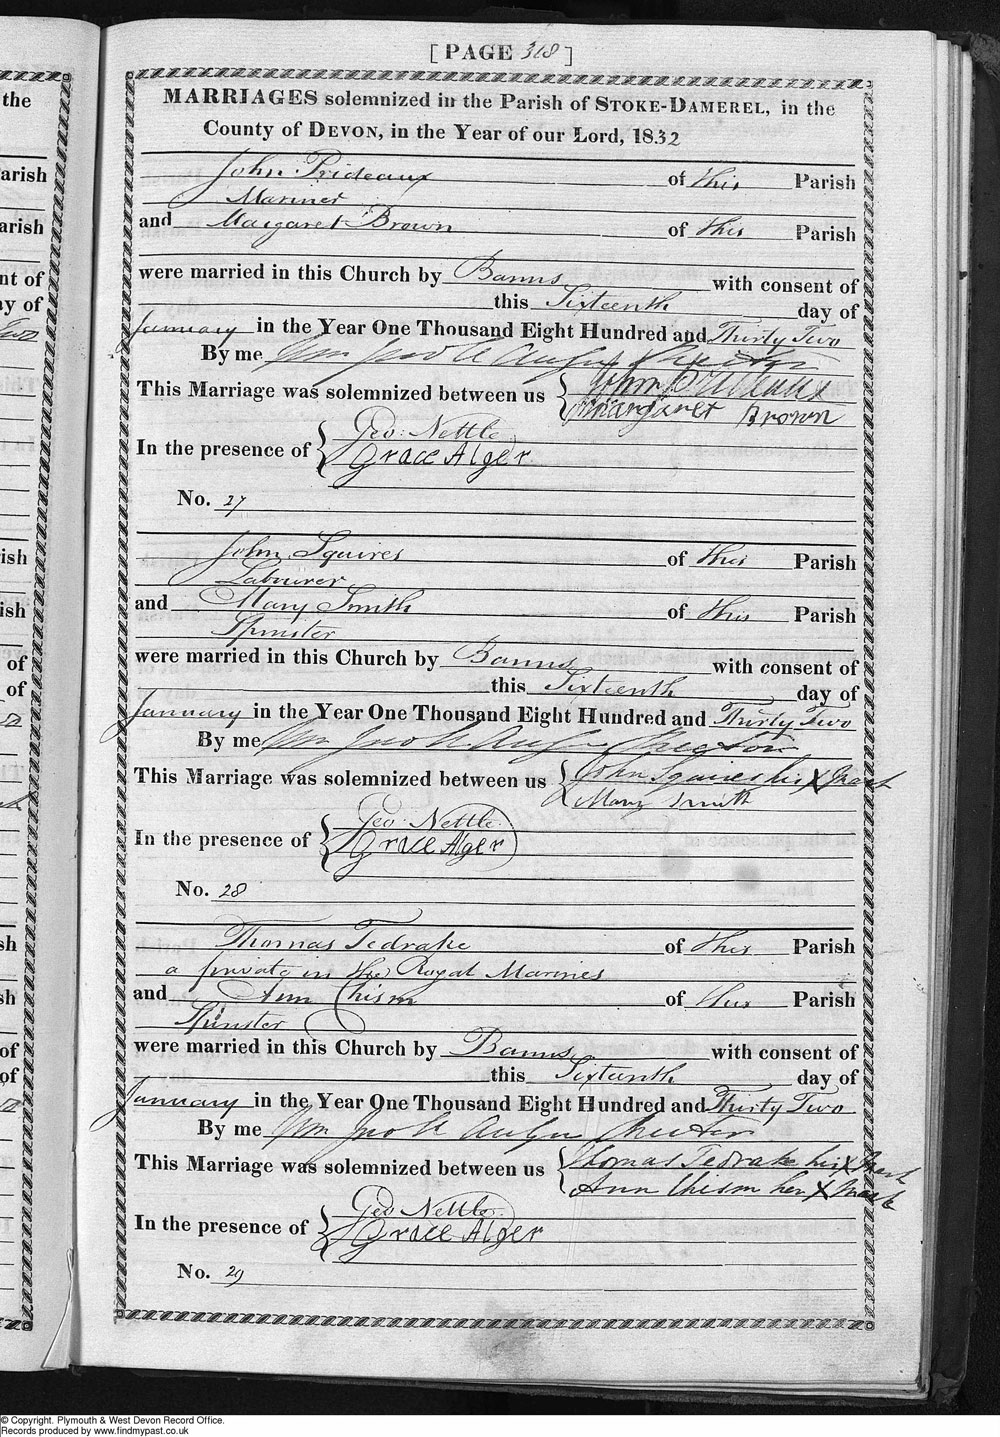 [PAGE 318]
MARRIAGES solemnized in the Parish of STOKE-DAMEREL, in the
County of DEVON, in the Year of our Lord, 1832
John Prideaux of this Parish
Mariner
and Margaret Brown of this Parish
were married in this Church by Banns with consent of
this Sixteenth day of
January in the Year One Thousand Eight Hundred and Thirty Two
By me Wm Jno
This Marriage was solemnized between us John Prideaux
Margaret Brown
In the presence of Geo: Nettle
Grace Alger
No. 27
John Squires of this Parish
Labourer
and Mary Smith of this Parish
Spinster
were married in this Church by Banns with consent of
this Sixteenth day of
January in the Year One Thousand Eight Hundred and Thirty Two
By me Wm Jno
This Marriage was solemnized between us John Squires his X Mark
Mary Smith
In the presence of Geo: Nettle
Grace Alger
No. 28
Thomas Tedrake of this Parish
a private in the Royal Marines
and Ann Chism of this Parish
Spinster
were married in this Church by Banns with consent of
this Sixteenth day of
January in the Year One Thousand Eight Hundred and Thirty Two
By me Wm Jno
This Marriage was solemnized between us Thomas Tedrake his X Mark
Ann Chism her X Mark
In the presence of Geo: Nettle
Grace Alger
No. 29
the
arish
arish
nt of
ay of
Two
ish
ish
of
of
sh
sh
of
of
© Copyright. Plymouth & West Devon Record Office.
Records produced by www.findmypast.co.uk